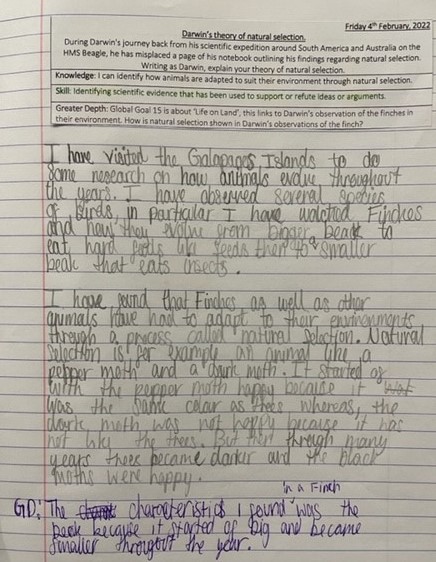 Friday 4th February, 2022
Darwin's theory of natural selection.
During Darwin's journey back from his scientific expedition around South America and Australia on the
HMS Beagle, he has misplaced a page of his notebook outlining his findings regarding natural selection.
Writing as Darwin, explain your theory of natural selection.
Knowledge: I can identify how animals are adapted to suit their environment through natural selection.
Skill: Identifying scientific evidence that has been used to support or refute ideas or arguments.
Greater Depth: Global Goal 15 is about 'Life on Land', this links to Darwin's observation of the finches in
their environment. How is natural selection shown in Darwin's observations of the finch?
I have visited the Galapagos Islands to do
some research on how animals evolve throughout
the years. I have observed several species
of birds, in particular I have Finches
and how they evolve from bigger beak to
eat hard like seeds then to a smaller
beak that eats insects.
I have found that Finches as well as other
animals have had to adapt to their environments
through a process called natural selection. Natural
Selection is for example an animal like a
pepper moth and a dark moth. It started of
with the pepper moth happy because it
was the same colar as trees whereas, the
dark moth was not happy because it has
not like the trees. But then through many
years trees became darker and the black
moths were happy.
in a Finch
GD: The characteristics I found was the
beak because it started of big and became
smaller througout the year.